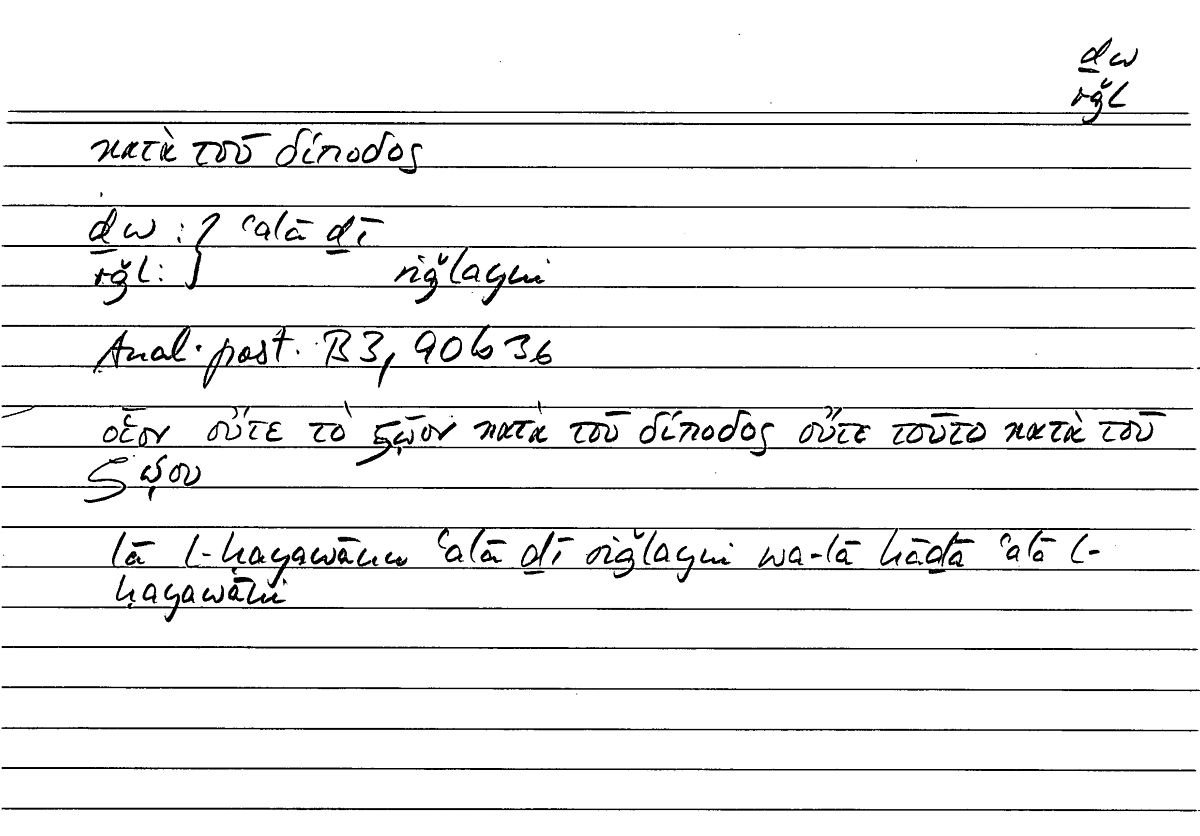 ḏw
rǧl
κατὰ τοῦ δίποδος
ḏw : } ʿalā ḏī
rǧl : riǧlayni
Anal. post. B3, 90b36
οἷον οὔτε τὸ ζῷον κατὰ τοῦ δίποδος οὔτε τοῦτο κατὰ τοῦ
ζῴου
lā l-ḥayawānu ʿalā ḏī riǧlayni wa-lā hāḏā ʿalā l-
ḥayawāni